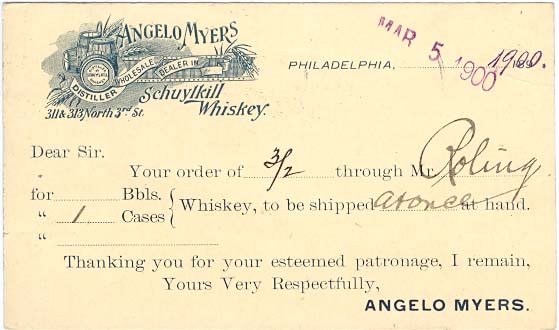 ANGELO MYERS
DISTILLER WHOLESALE DEALER IN
Schuylkill
Whiskey.
311 & 313 North 3rd St.
MAR 5 1900
PHILADELPHIA, 189 1900.
Dear Sir.
Your order of 3/2 through Mr. Roling
for Bbls.
" 1 Cases { Whiskey, to be shipped at once at hand.
"
Thanking you for your esteemed patronage, I remain,
Yours Very Respectfully,
ANGELO MYERS.